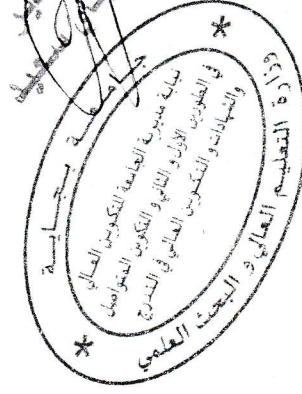 وزارة التعليم العالي و البحث العلمي
جامعة بجاية
نيابة مديرية الجامعة للتكوين العالي
في الطورين الأول و الثاني و التكوين المتواصل
والشهادات و التكوين العالي في التدرج